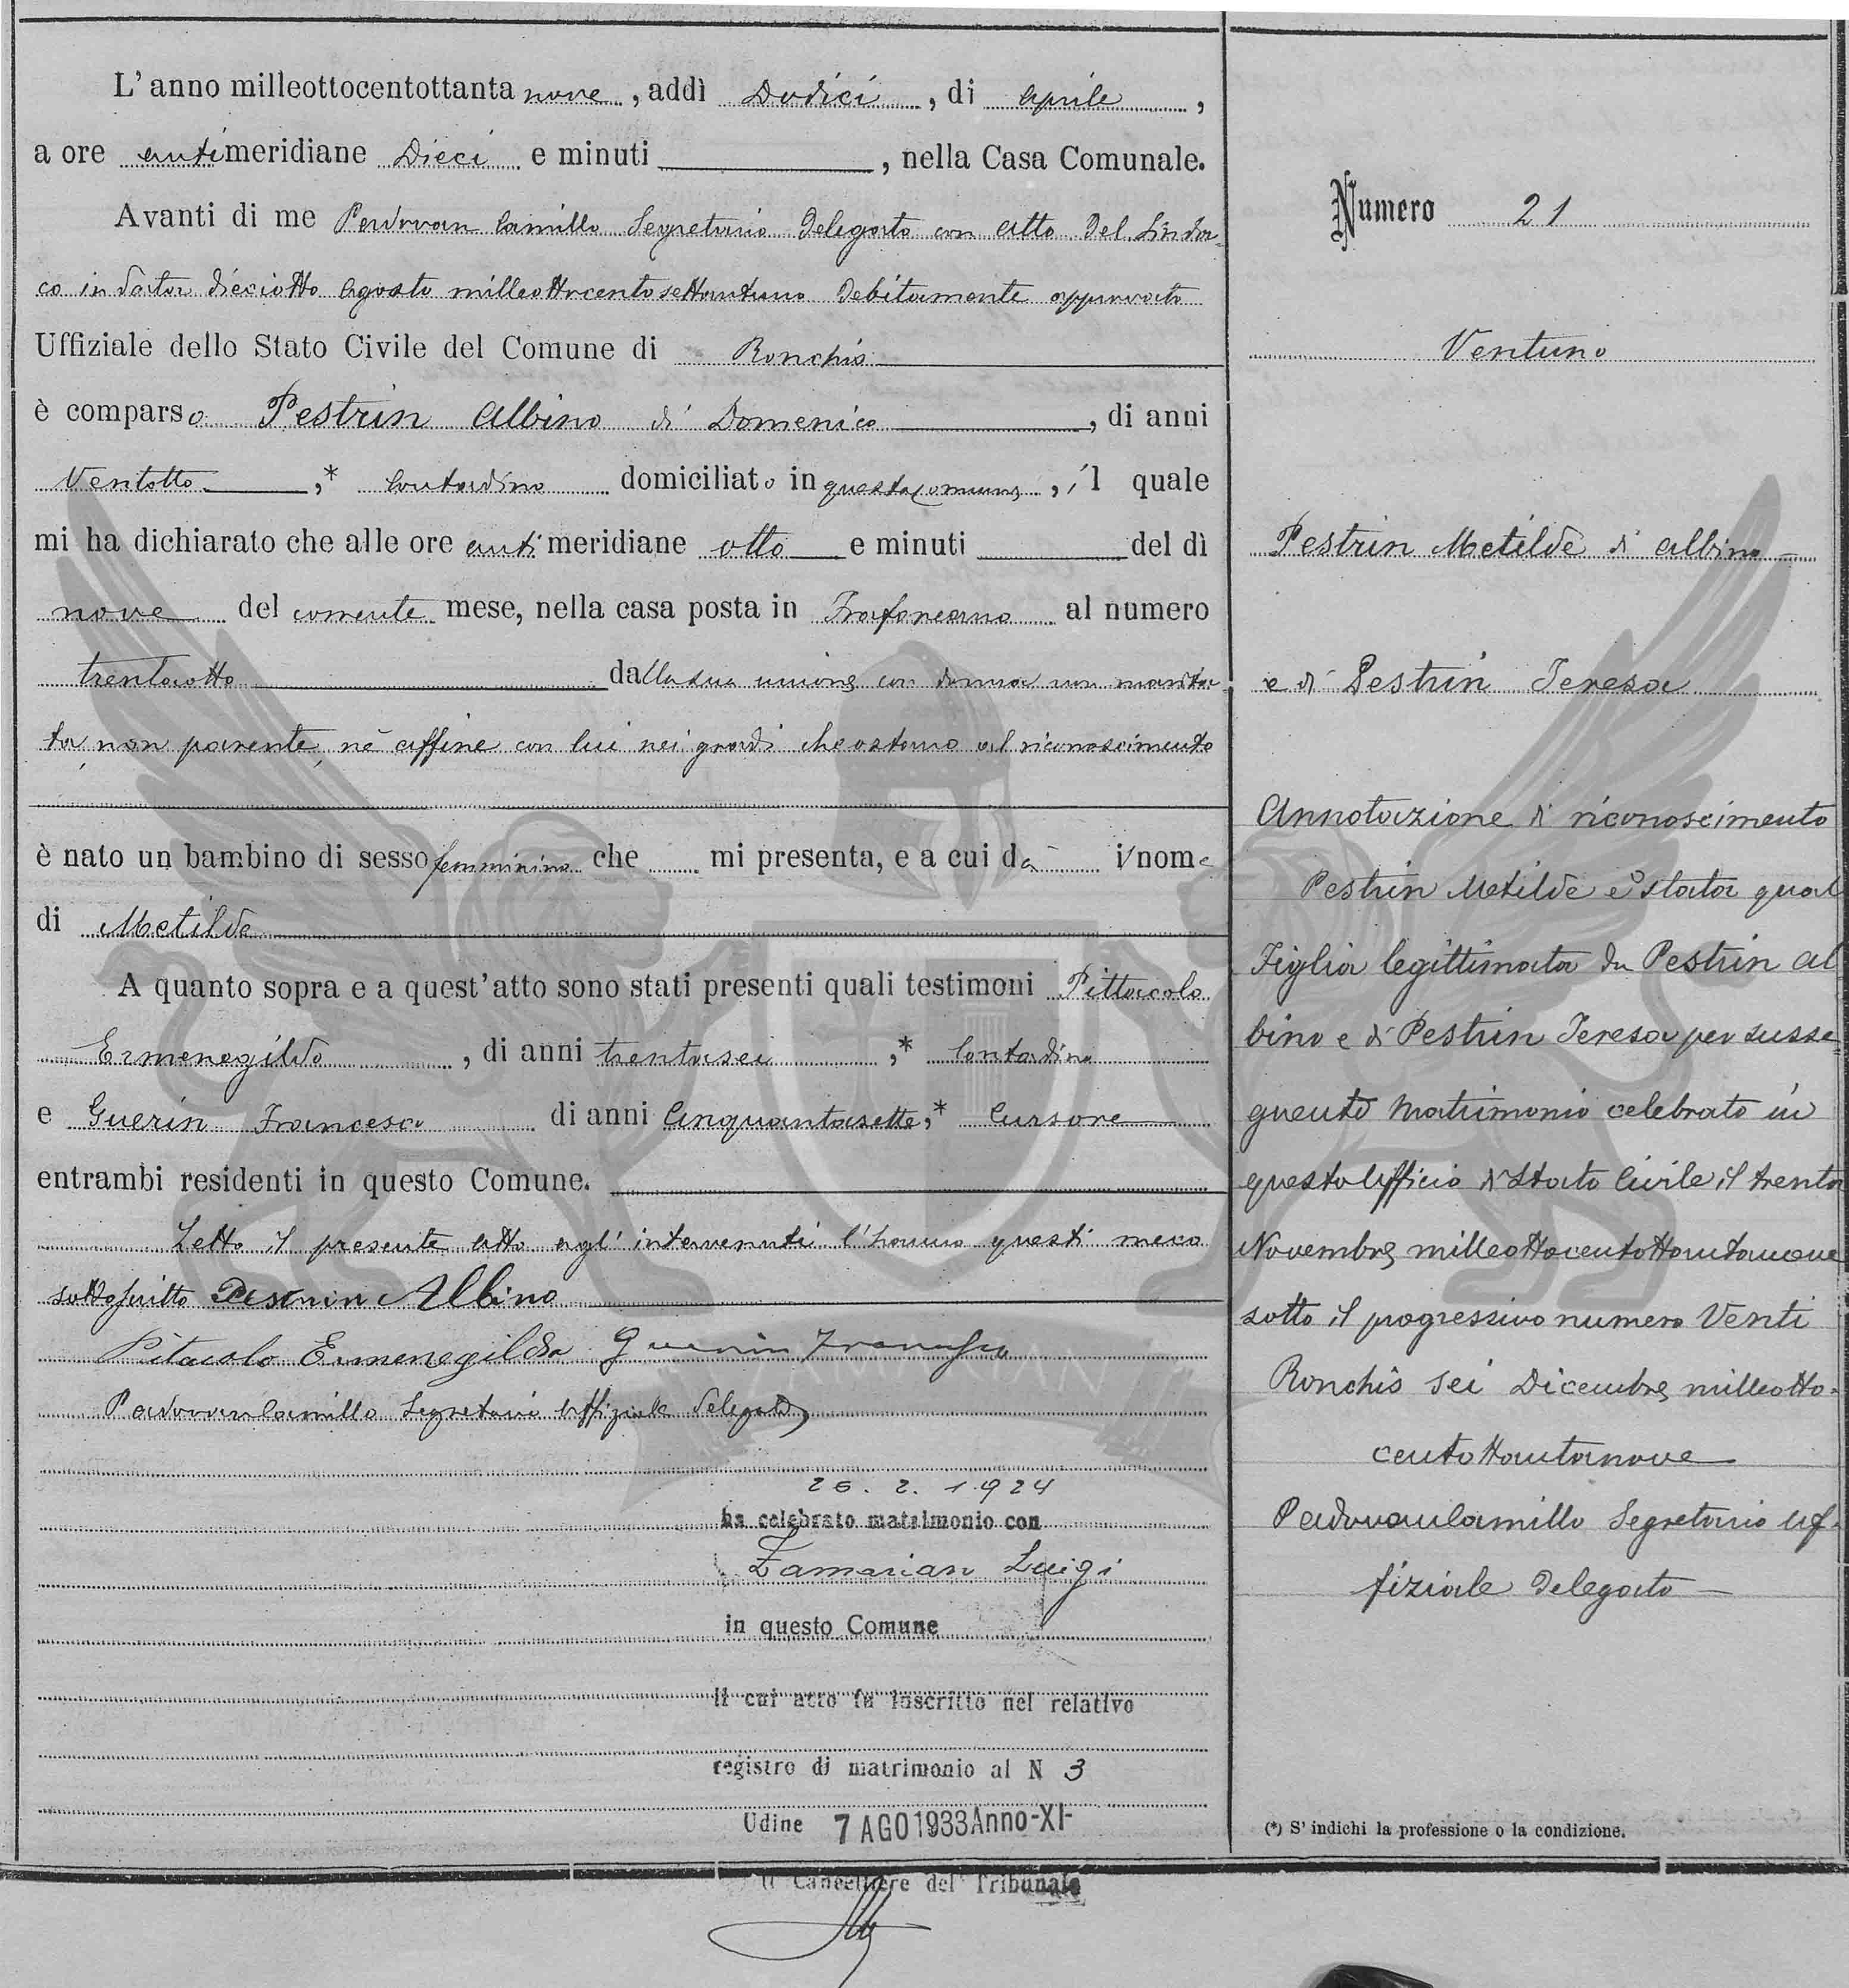 L'anno milleottocentottanta nove, addì Dodici, di Aprile,
a ore antimeridiane Dieci e minuti, nella Casa Comunale.
Avanti di me Padovan Camillo Segretario Delegato con atto Del Sinda-
co in data dieciotto Agosto milleottocentosettantuno Debitamente approvato
Uffiziale dello Stato Civile del Comune di Ronchis
è comparso Pestrin Albino di Domenico, di anni
Ventotto,* Contadino domiciliato in questo Comune, il quale
mi ha dichiarato che alle ore antimeridiane otto e minuti del dì
nove del corrente mese, nella casa posta in Fraforeano al numero
trentaotto dalla sua unione con donna non marita-
ta, non parente, nè affine con lui nei gradi che ostano al riconoscimento
è nato un bambino di sesso femminino che mi presenta, e a cui dà il nome
di Metilde
A quanto sopra e a quest'atto sono stati presenti quali testimoni Pittacolo
Ermenegildo, di anni trentasei,* Contadino
e Guerin Francesco di anni Cinquantasette,* Cursore
entrambi residenti in questo Comune.
Letto il presente atto agl'intervenuti l'hanno questi meco
sottoscritto Pestrin Albino
Pitacolo Ermenegildo Guerin Francesco
Padovan Camillo Segretario Uffiziale Delegato
26. 2. 1924
ha celebrato matrimonio con
Zamarian Luigi
in questo Comune
il cui atto fu inscritto nel relativo
registro di matrimonio al N 3
Udine 7 AGO 1933 Anno-XI-
Il Cancelliere del Tribunale
Numero 21
Ventuno
Pestrin Metilde di Albino
e di Pestrin Teresa
Annotazione di riconoscimento
Pestrin Metilde è stata qual
Figlia legittimata da Pestrin Al
bino e di Pestrin Teresa per susse=
guente Matrimonio celebrato in
questo Ufficio di Stato Civile il trenta
Novembre milleottocentottantanove
sotto il progressivo numero Venti
Ronchis Sei Dicembre milleotto-
centottantanove
Padovan Camillo Segretario Uf-
fiziale Delegato
(*) S'indichi la professione o la condizione.